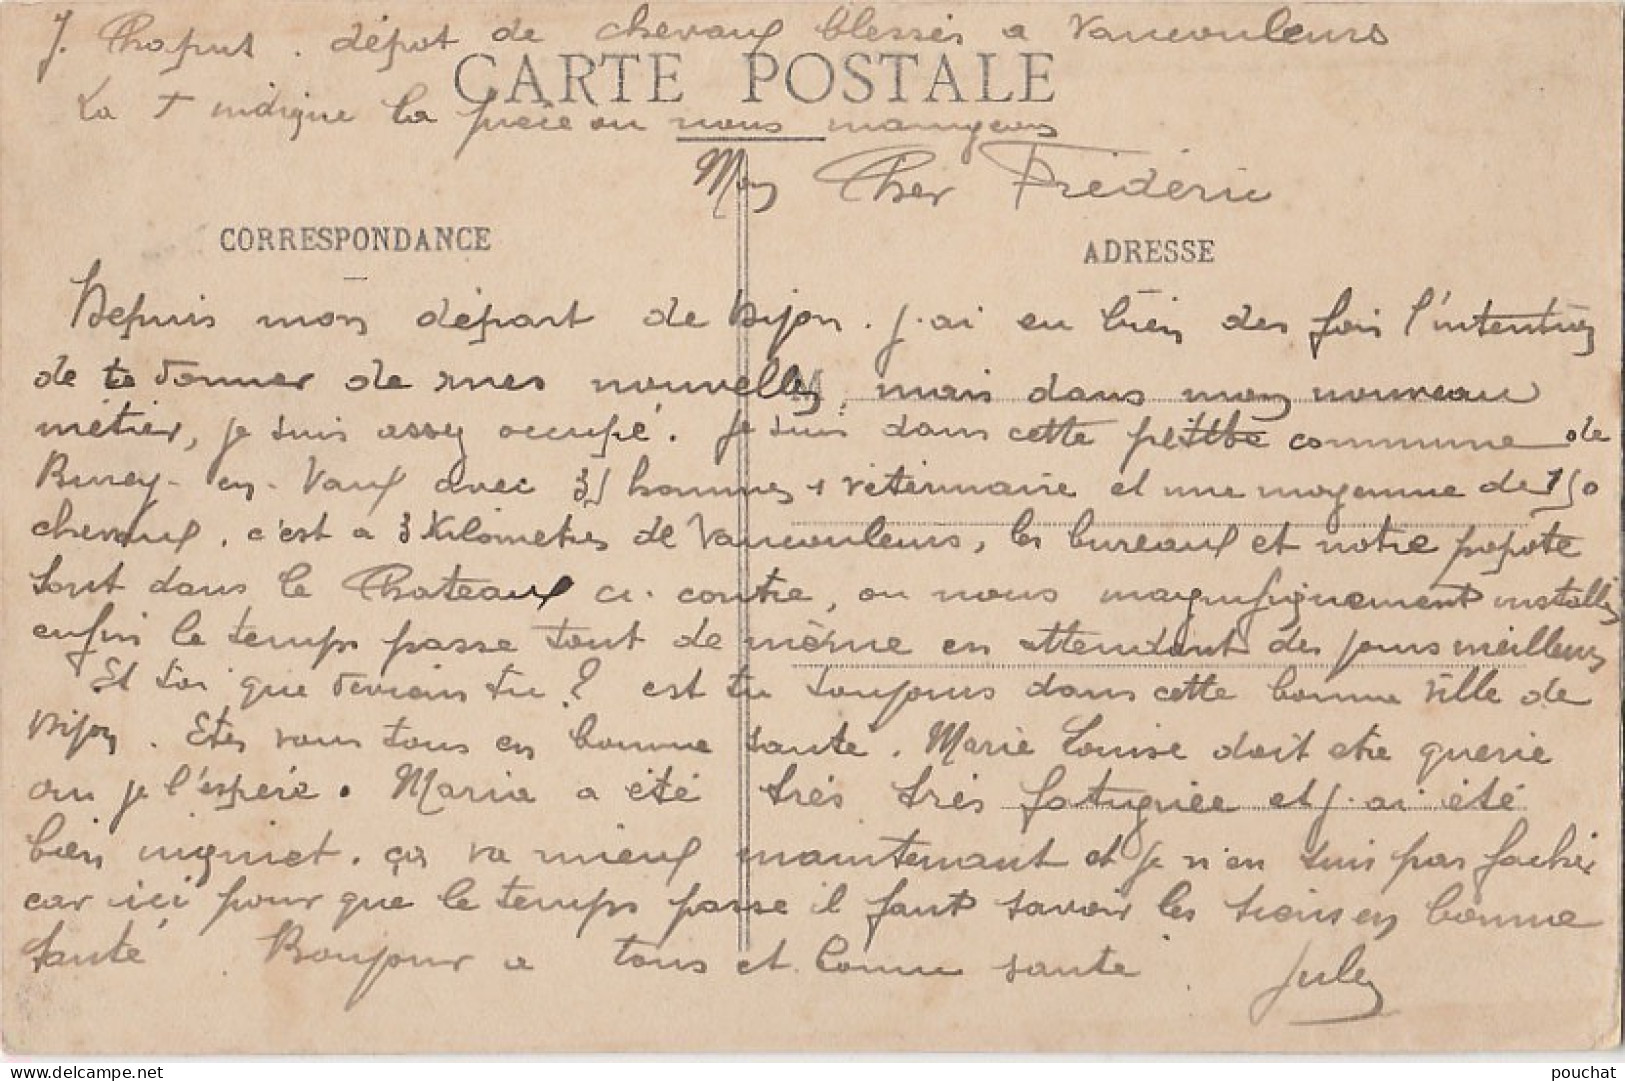 J. Chaput. dépot de chevaux blessés a Vaucouleurs
CARTE POSTALE
La + indique la pièce ou nous mangeons
Mon Cher Frédéric
CORRESPONDANCE
ADRESSE
Depuis mon départ de Dijon. j'ai eu bien des fois l'intention
de te donner de mes nouvelles, mais dans mon nouveau
métier, je suis assez occupé. Je suis dans cette petitte commune de
Burey-en-Vaux avec 35 hommes 1 vétérinaire et une moyenne de 150
chevaux. c'est a 3 Kilometres de Vaucouleurs, les bureaux et notre popote
sont dans le Chateaux ci-contre, ou nous magnifignement installés
enfin le temps passe tout de même en attendant des jours meilleurs
Et toi que deviens tu? est tu toujours dans cette bonne ville de
Dijon. Etes vous tous en bonne santé. Marie Louise doit etre guerie
ou je l'espére. Maria a été très très fatuguée et j'ai été
bien inquiet. ça va mieux maintenant et je n'en suis pas faché
car ici pour que le temps passe il faut savoir les siens en bonne
santé. Bonjour a tous et bonne santé
Jules
pouchat